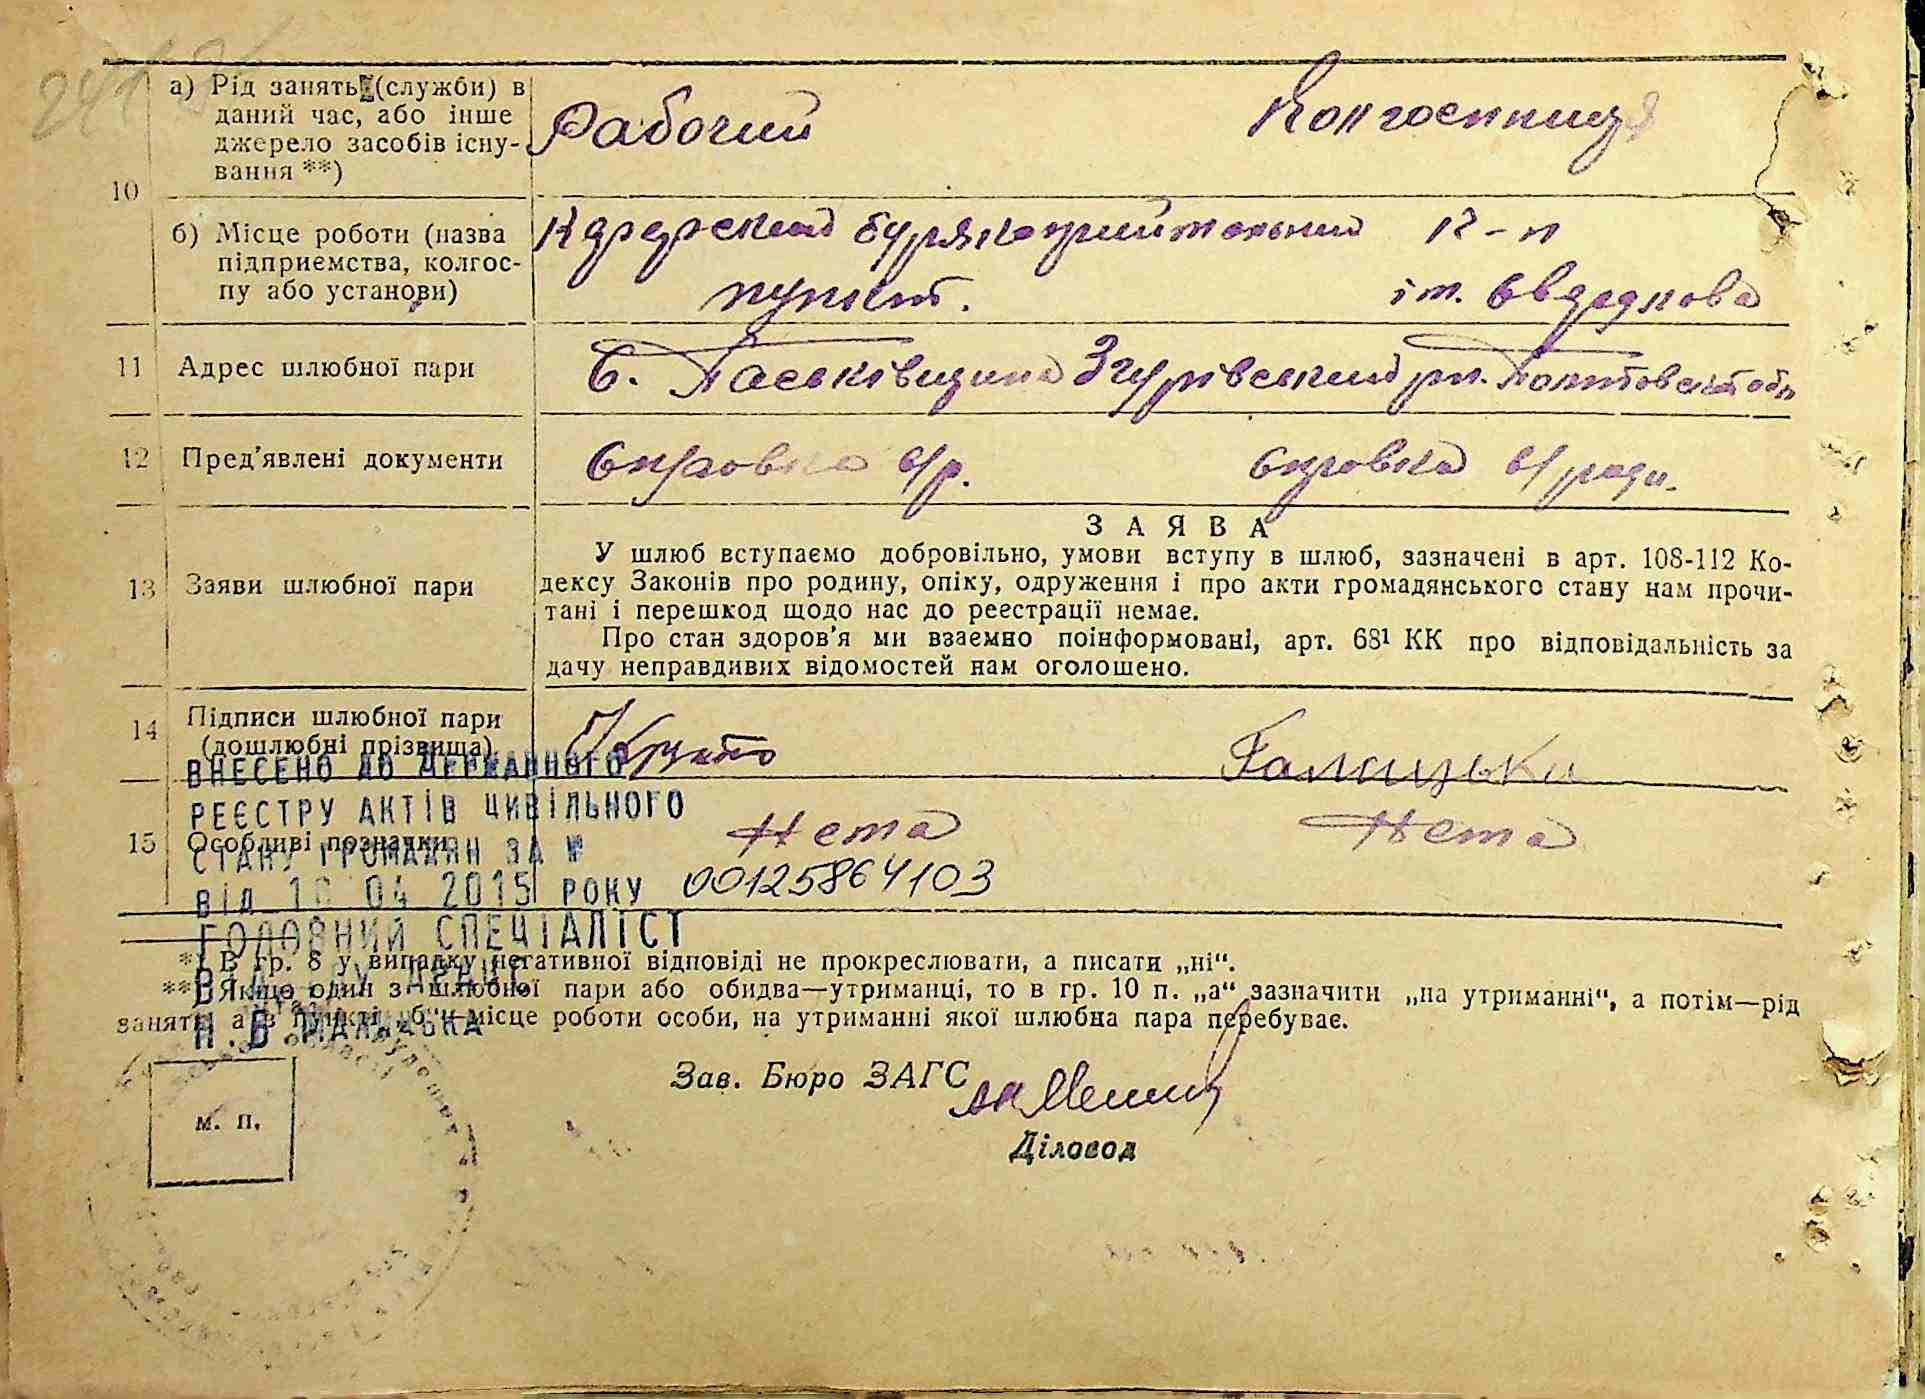 10
а) Рід занять (служби) в
даний час, або інше
джерело засобів існу-
вання **)
Рабочий
Колгоспниця
б) Місце роботи (назва
підприємства, колгос-
пу або установи)
бурякоприймальний
пункт.
к-п
ім.
11 Адрес шлюбної пари
С. Паськівщина Згурівський рн. Полтовської обл
12 Пред'явлені документи
Справка с/р.
Справка с/ради.
13 Заяви шлюбної пари
ЗАЯВА
У шлюб вступаємо добровільно, умови вступу в шлюб, зазначені в арт. 108-112 Ко-
дексу Законів про родину, опіку, одруження і про акти громадянського стану нам прочи-
тані і перешкод щодо нас до реєстрації немає.
Про стан здоров'я ми взаємно поінформовані, арт. 68¹ КК про відповідальність за
дачу неправдивих відомостей нам оголошено.
14 Підписи шлюбної пари
(дошлюбні прізвища)
Галицька
ВНЕСЕНО ДО ДЕРЖАВНОГО
РЕЄСТРУ АКТІВ ЦИВІЛЬНОГО
15 Особливі позначки
Нема
Нема
СТАНУ ГРОМАДЯН ЗА №
00125864103
ВІД 04 2015 РОКУ
ГОЛОВНИЙ СПЕЦІАЛІСТ
*) В гр. 8 у випадку негативної відповіді не прокреслювати, а писати „ні“.
**) Якщо один з шлюбної пари або обидва—утриманці, то в гр. 10 п. „а“ зазначити „на утриманні“, а потім—рід
занять, а в пункті „б“—місце роботи особи, на утриманні якої шлюбна пара перебуває.
Зав. Бюро ЗАГС
Діловод
м. п.